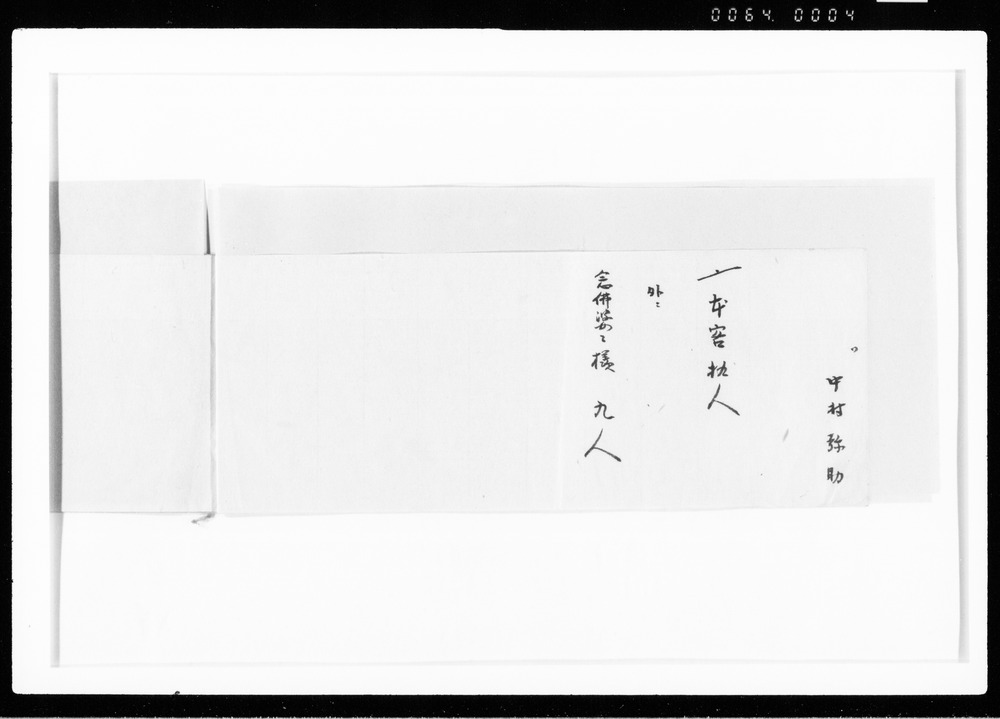 0064. 0004
中村弥助
一本客 人
外ニ
念佛婆々様 九人